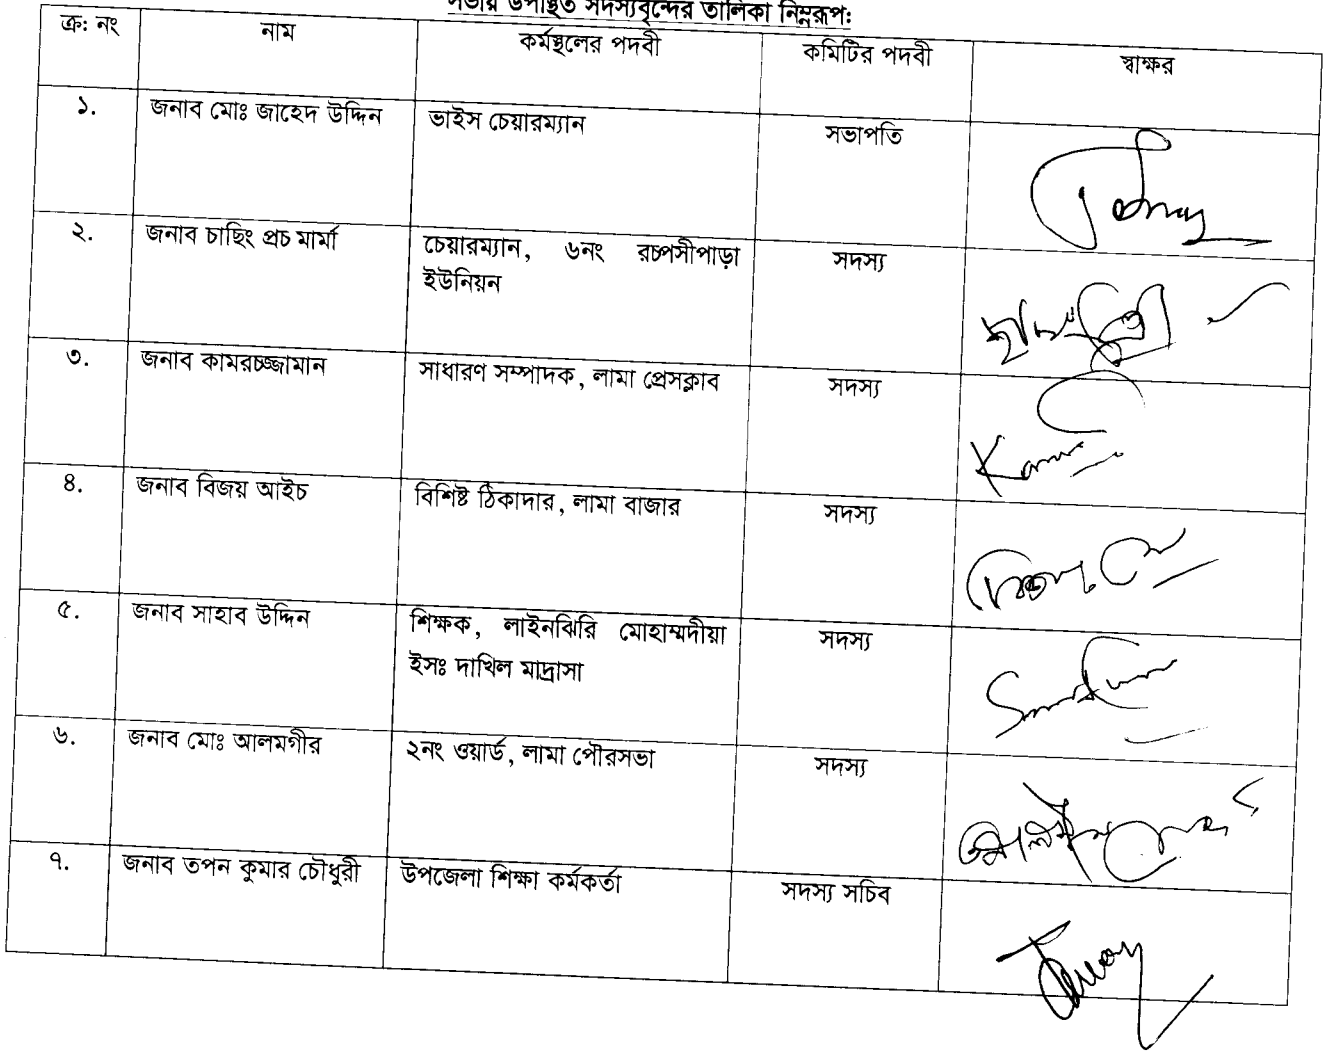 সভায় উপস্থিত সদস্যবৃন্দের তালিকা নিম্নরূপঃ
ক্র: নং নাম কর্মস্থলের পদবী কমিটির পদবী স্বাক্ষর
১. জনাব মোঃ জাহেদ উদ্দিন ভাইস চেয়ারম্যান সভাপতি
২. জনাব চাছিং প্রচ মার্মা চেয়ারম্যান, ৬নং রচপসীপাড়া সদস্য
ইউনিয়ন
৩. জনাব কামরচজ্জামান সাধারণ সম্পাদক, লামা প্রেসক্লাব সদস্য
৪. জনাব বিজয় আইচ বিশিষ্ট ঠিকাদার, লামা বাজার সদস্য
৫. জনাব সাহাব উদ্দিন শিক্ষক, লাইনঝিরি মোহাম্মদীয়া সদস্য
ইসঃ দাখিল মাদ্রাসা
৬. জনাব মোঃ আলমগীর ২নং ওয়ার্ড, লামা পৌরসভা সদস্য
৭. জনাব তপন কুমার চৌধুরী উপজেলা শিক্ষা কর্মকর্তা সদস্য সচিব